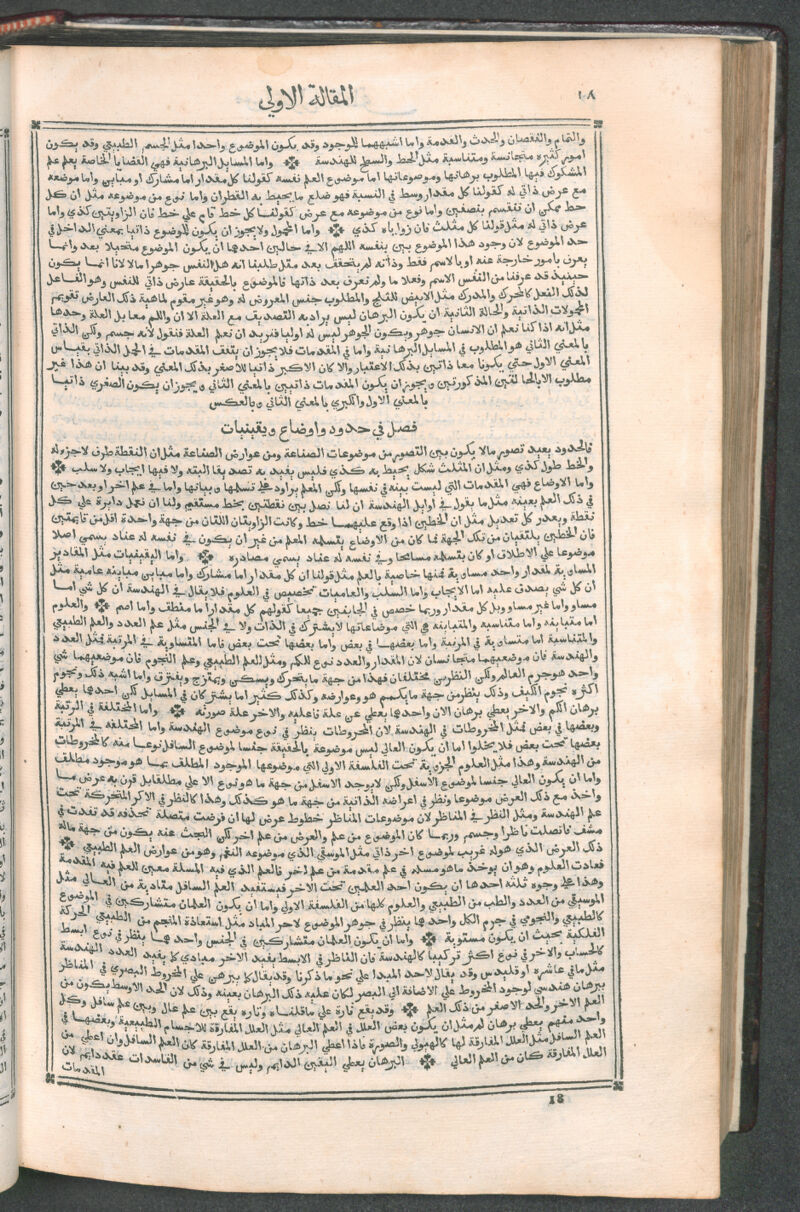 ١٨
المقالة الاولي
والتمام والنقصان والحدث والقدمة واما اشبههما للوجود وقد يكون الموضوع واحدا مثل الجسم الطبيعي وقد يكون
امور كثيرة متجانسة ومتناسبة مثل الخط والسطح للهندسة واما المسايل البرهانية فهي القضايا الخاصة بعلم علم
المشكوك فيها المطلوب برهانها وموضوعاتها اما موضوع العلم نفسه كقولنا كل مقدار اما مشارك او مباين واما موضعه
مع عرض ذاتي له كقولنا كل مقدار وسط في النسبة فهو ضلع ما يحيط به القطران واما نوع من موضوعه مثل ان كل
خط يمكن ان ينقسم بنصفين واما نوع من موضوعه مع عرض كقولنا كل خط قام علي خط فان الزاويتين كذي واما
عرض ذاتي له مثل قولنا كل مثلث فان زواياه كذي واما المحمول ولا يجوز ان يكون للوضوع ذاتيا بمعني الداخل في
حد الموضوع لان وجود هذا الموضوع بين بنفسه اللهم الا في حالين احدهما ان يكون الموضوع متخيلا بعد وانما
يعرف بامور خارجة عنه او بالاسم فقط وذاته لم يتحقف بعد مثل طلبنا انه هل النفس جوهر ام لا لانا انما يكون
حينيد قد عرفنا من النفس الاسم وفعلا ما ولم نعرف بعد ذاتها فالموضوع بالحقيقة عارض ذاتي للنفس وهو الفاعل
لذلك الفعل كالمحرك والمدرك مثل الابيض للثلج والمطلوب جنس المعروض له وهو غير مقوم لماهية ذلك العارض تقويم
المحمولات الذاتية والحالة الثانية ان يكون البرهان ليس يراد به التصديق مع العلة الا ان واللم معا بل العلة وحدها
مثل انه اذا كنا نعلم ان الانسان جوهر ويكون الجوهر ليس له اوليا فنريد ان نعلم العلة فنقول لانه جسم ولكن الذاتي
بالمعني الثاني هو المطلوب في المسايل البرهانية واما في المقدمات فلا يجوز ان يتفق المقدمات في الحل الذاتي بقياس
المعني الاول حتي يكونا معا ذاتين بذلك الاعتبار والا كان الاكبر ذاتيا للاصغر بذلك المعني وقد بينا ان هذا غير
مطلوب الا بالحالتين المذكورتين ويجوز ان يكون المقدمات ذاتيين بالمعني الثاني ويجوز ان يكون الصغري ذاتيا
بالمعني الاول والكبري بالمعني الثاني وبالعكس
فصل في حدود واوضاع ويقينيات
فالحدود يعيد تصور مالا يكون بين التصور من موضوعات الصناعة ومن عوارض الصناعة مثل ان النقطة طرف لا جزء له
والخط طول كذي ومثل ان المثلث شكل يحيط به كذي فليس يفيد به تصديقا البته ولا فيها ايجاب ولا سلب
واما الاوضاع فهي المقدمات التي ليست بينه في نفسها ولكن المعلم يراود علي تسلمها وبيانها واما في علم اخر او بعد حين
في ذلك العلم بعينه مثل ما يقول في اوايل الهندسة ان لنا نصل بين نقطتين بخط مستقيم ولنا ان نعمل دايرة علي كل
نقطة وبعد كل تعديل مثل ان الخطين اذا وقع عليهما خط وكانت الزاويتان اللتان من جهة واحدة اقل من قايمتين
فان الخطين يلتقيان من تلك الجهة فما كان من الاوضاع يتسلمه المعلم من غير ان يكون في نفسه له عناد يسمي اصلا
موضوعا علي الاطلاق او كان يتسلمه مسامحا وفي نفسه له عناد يسمي مصادره واما اليقينيات مثل المقادير
المساوية لمقدار واحد مساوية فمنها خاصية بالعلم مثل قولنا ان كل مقدار اما مشارك واما مباين مباينه عامية مثل
ان كل شي يصدق عليه اما الايجاب واما السلب والعاميات تخصيص في العلوم فلا يقال في الهندسة ان كل شي اما
مساو واما غير مساو وبل كل مقدار وربما خصص في الجانبين جميعا كقولهم كل مقدار اما منطف واما اصم والعلوم
اما متباينه واما متناسبه والمتباينه هي التي موضاعاتها لا يشترك في الذات ولا في الجنس مثل علم العدد والعلم الطبيعي
والمتناسبة اما متساوية في المرتبة واما بعضها في بعض واما بعضها تحت بعض فاما المتساوية في المرتبة فمثل العدد
والهندسة فان موضعيهما متجانسان لان المقدار والعدد نوع للكم ومثل العلم الطبيعي وعلم النجوم فان موضعيهما شي
واحد هو جرم العالم ولكن النظرين مختلفان فهذا من جهة ما يتحرك ويسكن ويمتزج ويفترق واما اشبه ذلك ونجوم
اكثره نجوم الكيف وذلك ينظر من جهة ما يكمم هو وعوارضه وكذلك كثيرا ما يشتركان في المسايل لكن احدهما يعطي
برهان اللم والاخر يعطي برهان الان واحدهما يعطي عن علة فاعليه والاخر علة صوريه واما المختلفة في الرتبة
وبعضها في بعض فمثل المخروطات في الهندسة لان المخروطات ينظر في نوع موضوع الهندسة واما المختلفه في المرتبة
بعضها تحت بعض فلا يخلوا اما ان يكون العالي ليس موضوعة بالحقيقة جنسا لموضوع السافل نوعا منه كالمخروطات
من الهندسة وهذا مثل العلوم الجزوية تحت الفلسفة الاولي التي موضوعها الموجود المطلف بما هو موجود مطلف
واما ان يكون العالي جنسا لموضوع الاسفل ولكن لا يوجد الاسفل من جهة ما هو نوع الا علي مطلقا بل قرن به عرض ما
واخذ مع ذلك العرض موضوعا ونظر في اعراضه الذاتية من جهة ما هو كذلك وهذا كالنظر في الاكر المتحركة تحت
علم الهندسة ومثل النظر في المناظر لان موضوعات المناظر خطوط عرض لها ان فرضت متصلة بحدقه قد نفذت في
مشف فاتصلت باطرا وجسم وربما كان الموضوع من علم والعرض من علم اخر لكن البحث عنه يكون من جهة ماله
ذلك العرض الذي هو له غريب لموضوع اخر ذاتي مثل الموسقي الذي موضوعه النغم وهو من عوارض العلم الطبيعي
فعادت العلوم وهو ان يوخذ ما هو مسله في علم مقدمة من علم اخر فالعلم الذي فيه المسلة معين للعلم فيه المقدمة
وهذا علي وجوه ثلثه احدها ان يكون احد العلمين تحت الاخر فيستفيد العلم السافل مقادية من العالي مثل
الموسيقي من العدد والطب من الطبيعي والعلوم كلها من الفلسفة الاولي واما ان يكون العلمان متشاركين في الموضوع
كالطبيعي والنجومي في جرم الكل واحدهما ينظر في جوهر الموضوع لاحر المباد مثل استعاذة المنجم من الطبيعي الحركة
الفلكية بحيث ان يكون مستوية واما ان يكون العلمان متشاركين في الجنس واحدهما ينظر في نوع ابسط
كالحساب والاخر في نوع اكثر تركيبا كالهندسة فان الناظر في الابسط يفيد الاخر مبادي كما يفيد العدد الهندسة
مثل ما في عاشره اوقليدس وقد يقال لاحد المبدا علي نحو ما ذكرنا وقد يقال كما يبرهن علي المخروط البصري في المناظر
ببرهان هندسي لوجود المخروط علي الاضافة الي البصر لكان عليه ذلك البرهان بعينه وذلك لان الحد الاوسط يكون من
العلم الاخر والحد الاصغر من ذلك العلم وقد يقع تارة علي ما قلناه وتاره يقع بين علم عال وبين علم سافل وكل
واحد منهم يعطي برهان لم مثل ان يكون بعض العلل في العلم العالي مثل العلل المفارقة للاجسام الطبيعية وبعضها في
العلم السافل مثل العلل المقارفة لها كالهيولي والصورة فاذا اعطي البرهان من العلل المقارفة كان العلم السافل وان اعطي من
العلل المفارقة كان من العلم العالي البرهان يعطي اليقين الدايم وليس في شي من الفاسدات عقد دايم لان
المقدمات
18